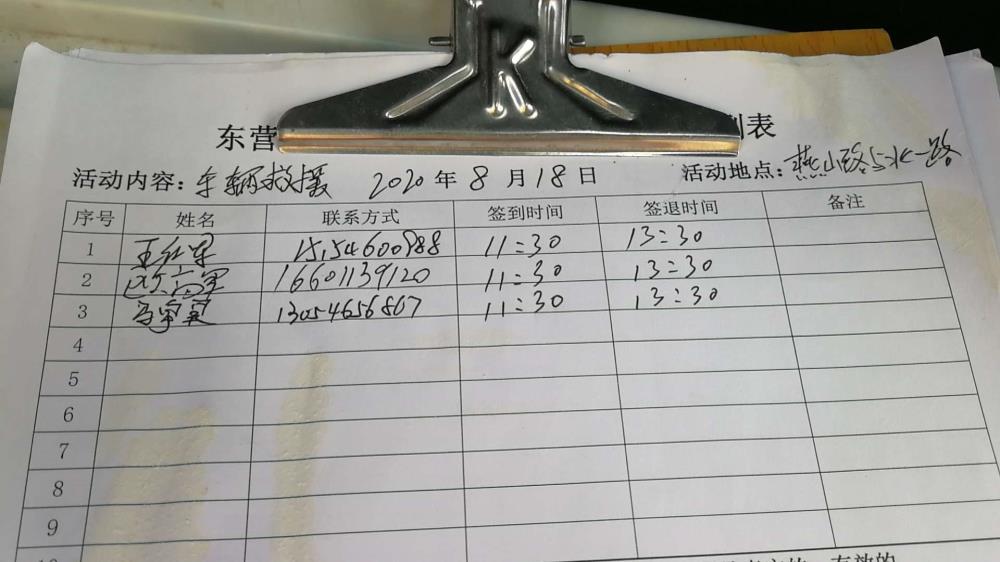 东营 到表
活动内容：车辆救援 2020年8月18日 活动地点：燕山路与北一路
序号 姓名 联系方式 签到时间 签退时间 备注
1 王红军 15154600988 11:30 13:30
2 16601139120 11:30 13:30
3 13054656867 11:30 13:30
4
5
6
7
8
9
10 有效的